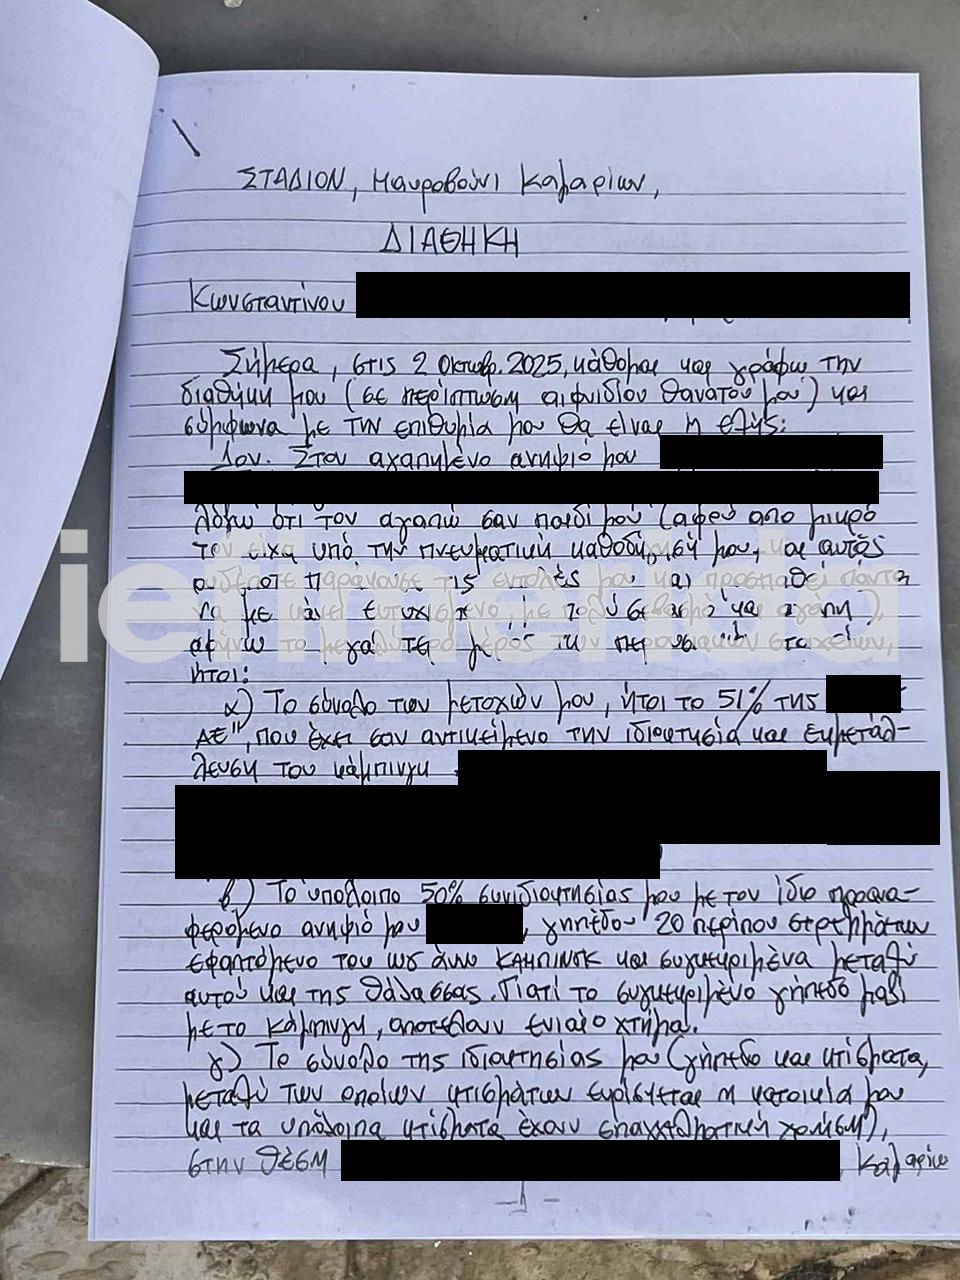 ΣΤΑΔΙΟΝ, Μαυροβούνι Καμαρίων,
ΔΙΑΘΗΚΗ
Κωνσταντίνου
Σήμερα, στις 2 Οκτωβρ. 2025, κάθομαι και γράφω την
διαθήκη μου (σε περίπτωση αιφνιδίου θανάτου μου) και
σύμφωνα με την επιθυμία μου θα είναι η εξής:
Στον αγαπημένο ανηψιό μου
λόγω ότι τον αγαπώ σαν παιδί μου (αφού από μικρό
τον είχα υπό την πνευματική καθοδήγησή μου, και αυτός
ουδέποτε παράκουσε τις εντολές μου και προσπαθεί πάντα
να με κάνει ευτυχισμένο με πολύ σεβασμό και αγάπη),
αφήνω το μεγαλύτερο μέρος των περιουσιακών στοιχείων,
ήτοι:
α) Το σύνολο των μετοχών μου, ήτοι το 51% της
ΑΕ", που έχει σαν αντικείμενο την ιδιοκτησία και εκμετάλ-
λευση του κάμπινγκ
β) Το υπόλοιπο 50% συνιδιοκτησίας μου με τον ίδιο προανα-
φερόμενο ανηψιό μου , γηπέδου 20 περίπου στρεμμάτων
εφαπτόμενο του ως άνω ΚΑΜΠΙΝΓΚ και συγκεκριμένα μεταξύ
αυτού και της θάλασσας. Γιατί το συγκεκριμένο γήπεδο μαζί
με το κάμπινγκ, αποτελούν ενιαίο κτήμα.
γ) Το σύνολο της ιδιοκτησίας μου (γήπεδο και κτίσματα,
μεταξύ των οποίων κτισμάτων ευρίσκεται η κατοικία μου
και τα υπόλοιπα κτίσματα έχουν επαγγελματική χρήση),
στην θέση , Καμαρίων
- 1 -
iefimerida